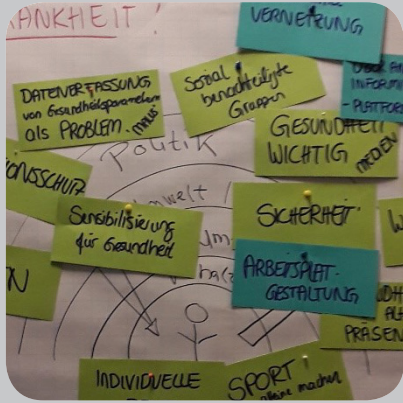 ANKHEIT!
VERNETZUNG
DATENERFASSUNG
von Gesundheitsparametern
als PROBLEM.
Sozial
benachteiligte
Gruppen
INFORM
- PLATTFOR
GESUNDHEIT
WICHTIG
MEDIEN
Politik
ONSSCHUTZ
mwelt
Sensibilisierung
für Gesundheit
SICHERHEIT
Um
ARBEITSPLAT-
GESTALTUNG
N
PRÄSEN
INDIVIDUELLE
SPORT
alleine machen